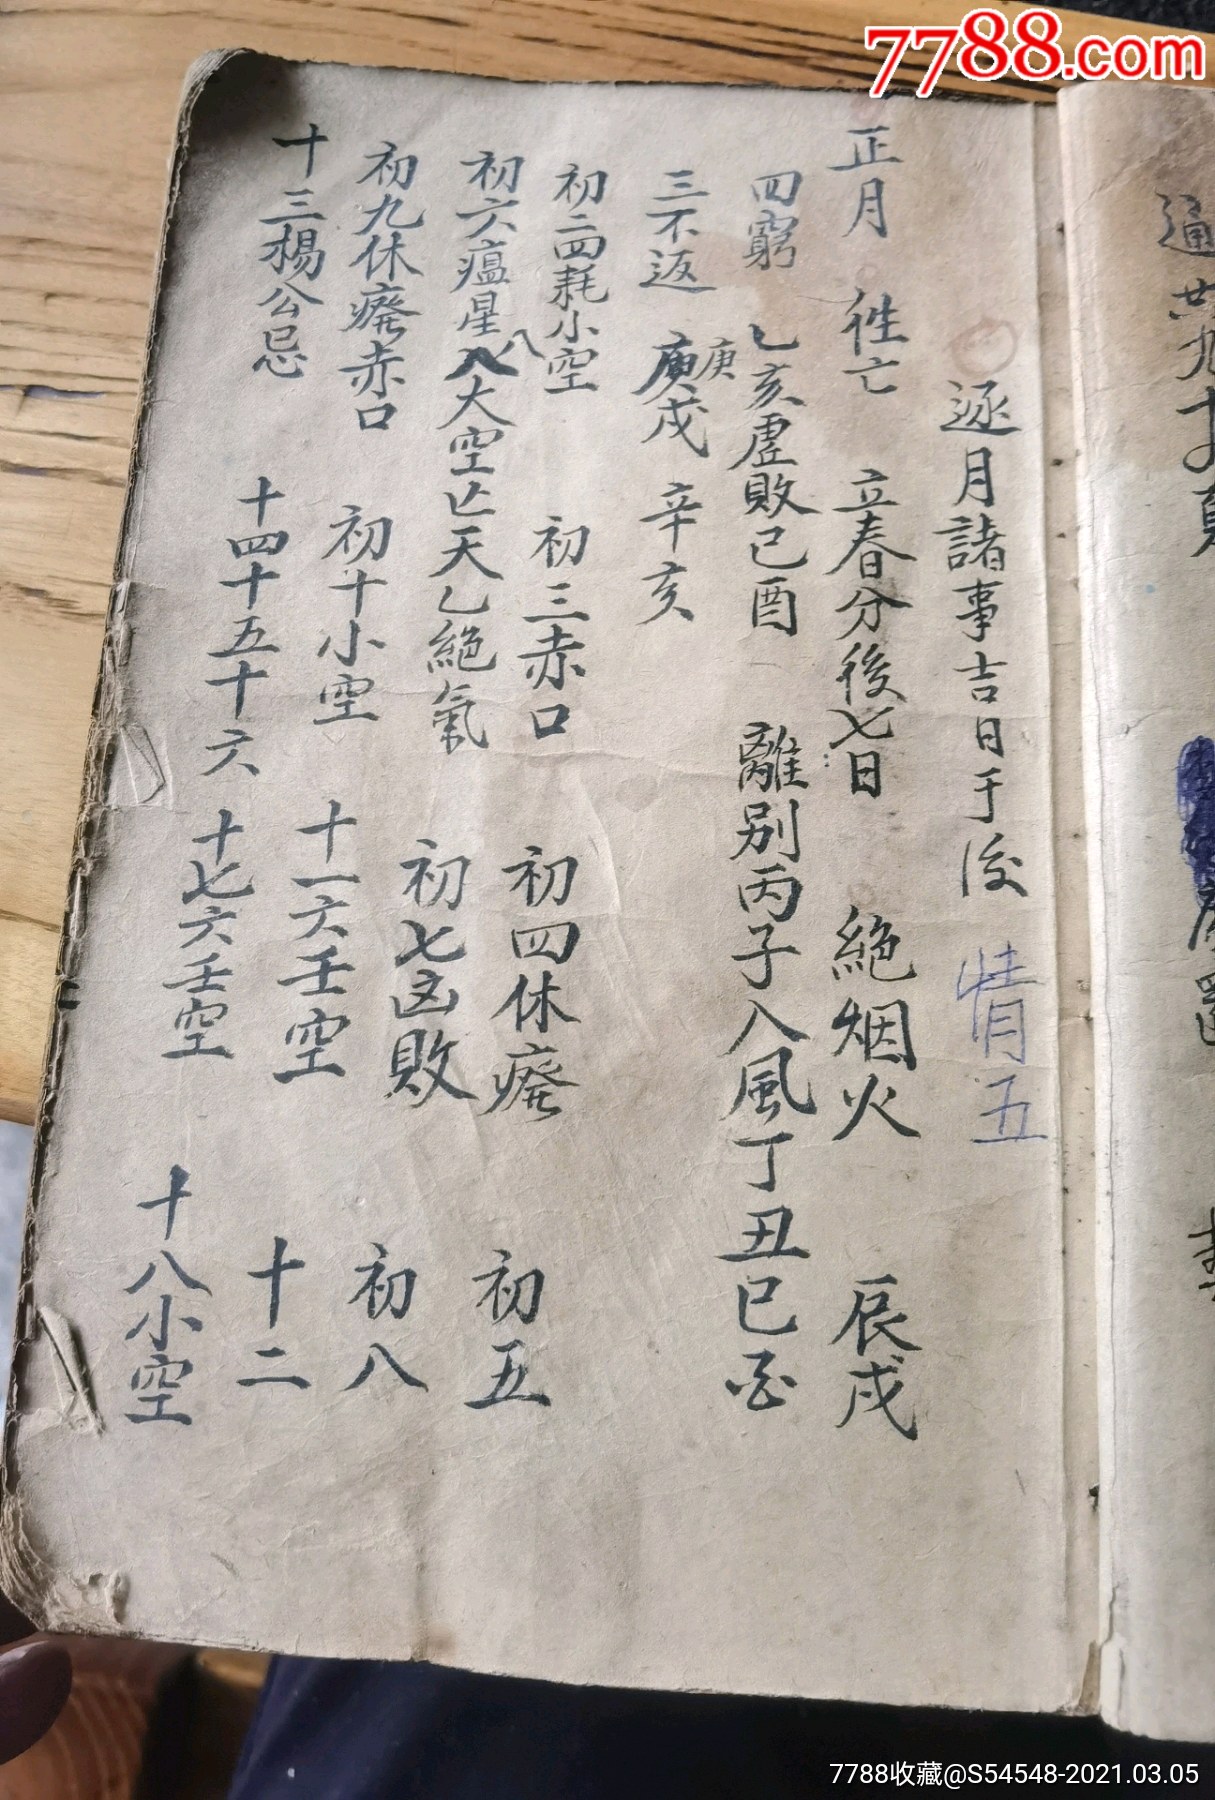 7788.com
逐月諸事吉日于後 情五
正月 徃亡 立春分後七日 絕烟火 辰戌
四窮 乙亥虛敗己酉 離别丙子八風丁丑巳酉
三不返 庚戌 庚 辛亥
初二四耗小空 初三赤口 初四休廢 初五
初六瘟星入八大空亡天乙絕氣 初七凶敗 初八
初九休廢赤口 初十小空 十一六壬空 十二
十三楊公忌 十四十五十六 十七六壬空 十八小空
7788收藏@S54548-2021.03.05